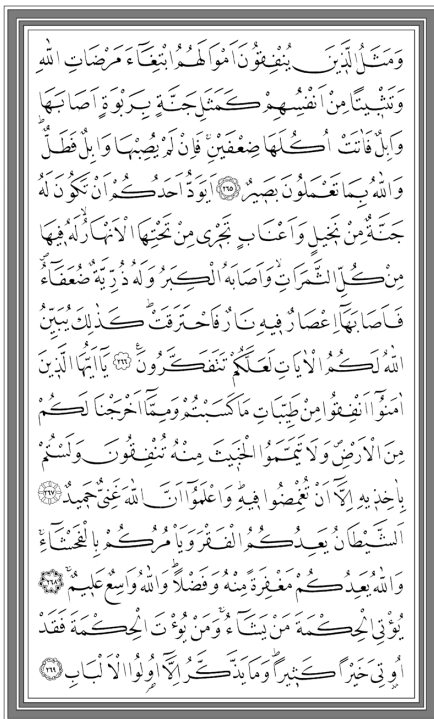 وَمَثَلُ الَّذ۪ينَ يُنْفِقُونَ اَمْوَالَهُمُ ابْتِغَٓاءَ مَرْضَاتِ اللّٰهِ
وَتَثْب۪يتًا مِنْ اَنْفُسِهِمْ كَمَثَلِ جَنَّةٍ بِرَبْوَةٍ اَصَابَهَا
وَابِلٌ فَاٰتَتْ اُكُلَهَا ضِعْفَيْنِۚ فَاِنْ لَمْ يُصِبْهَا وَابِلٌ فَطَلٌّۜ
وَاللّٰهُ بِمَا تَعْمَلُونَ بَص۪يرٌ ﴿٢٦٥﴾ اَيَوَدُّ اَحَدُكُمْ اَنْ تَكُونَ لَهُ
جَنَّةٌ مِنْ نَخ۪يلٍ وَاَعْنَابٍ تَجْر۪ي مِنْ تَحْتِهَا الْاَنْهَارُۙ لَهُ ف۪يهَا
مِنْ كُلِّ الثَّمَرَاتِۙ وَاَصَابَهُ الْكِبَرُ وَلَهُ ذُرِّيَّةٌ ضُعَفَٓاءُۖ
فَاَصَابَهَٓا اِعْصَارٌ ف۪يهِ نَارٌ فَاحْتَرَقَتْۜ كَذٰلِكَ يُبَيِّنُ
اللّٰهُ لَكُمُ الْاٰيَاتِ لَعَلَّكُمْ تَتَفَكَّرُونَ۟ ﴿٢٦٦﴾ يَٓا اَيُّهَا الَّذ۪ينَ
اٰمَنُٓوا اَنْفِقُوا مِنْ طَيِّبَاتِ مَا كَسَبْتُمْ وَمِمَّٓا اَخْرَجْنَا لَكُمْ
مِنَ الْاَرْضِۖ وَلَا تَيَمَّمُوا الْخَب۪يثَ مِنْهُ تُنْفِقُونَ وَلَسْتُمْ
بِاٰخِذ۪يهِ اِلَّٓا اَنْ تُغْمِضُوا ف۪يهِۜ وَاعْلَمُٓوا اَنَّ اللّٰهَ غَنِيٌّ حَم۪يدٌ ﴿٢٦٧﴾
اَلشَّيْطَانُ يَعِدُكُمُ الْفَقْرَ وَيَأْمُرُكُمْ بِالْفَحْشَٓاءِۚ
وَاللّٰهُ يَعِدُكُمْ مَغْفِرَةً مِنْهُ وَفَضْلًاۜ وَاللّٰهُ وَاسِعٌ عَل۪يمٌۚ ﴿٢٦٨﴾
يُؤْتِي الْحِكْمَةَ مَنْ يَشَٓاءُۚ وَمَنْ يُؤْتَ الْحِكْمَةَ فَقَدْ
اُو۫تِيَ خَيْرًا كَث۪يرًاۜ وَمَا يَذَّكَّرُ اِلَّٓا اُو۬لُوا الْاَلْبَابِ ﴿٢٦٩﴾